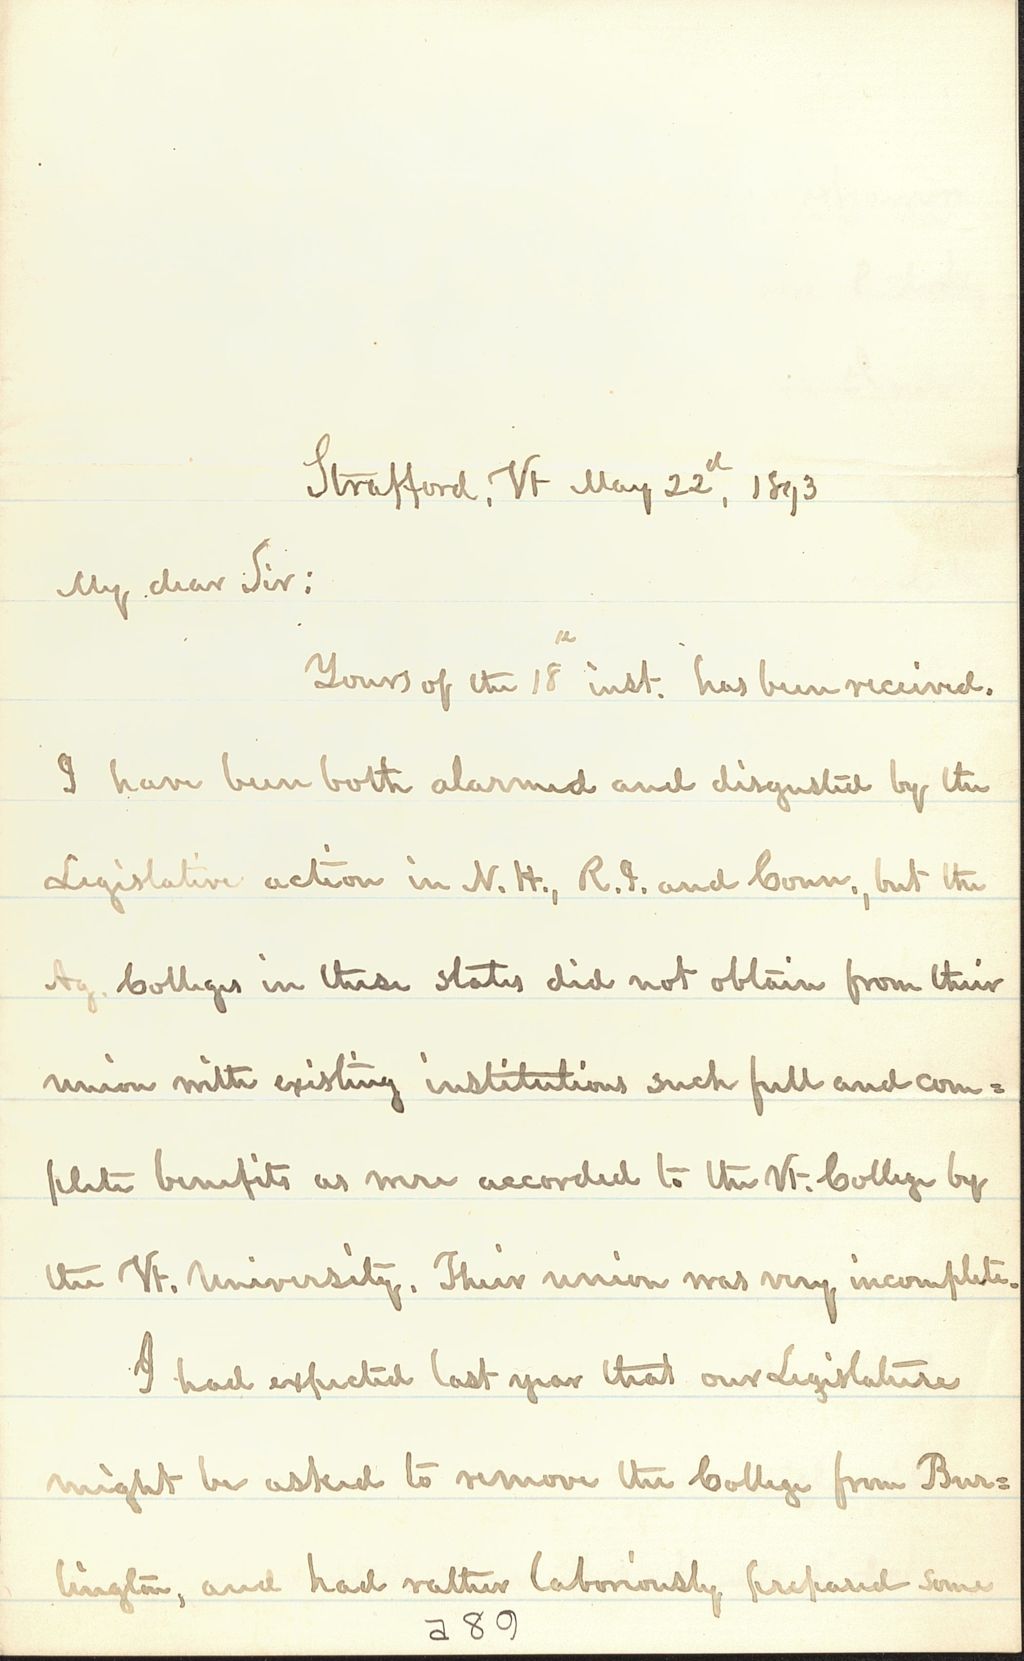 Strafford, Vt May 22d, 1893
My dear Sir:
Yours of the 18th inst. has been received.
I have been both alarmed and disgusted by the
Legislative action in N. H., R. I. and Conn., but the
Ag. Colleges in these states did not obtain from their
union with existing institutions such full and com=
plete benefits as were accorded to the Vt. College by
the Vt. University. Their union was very incomplete.
I had expected last year that our Legislature
might be asked to remove the College from Bur=
lington, and had rather laboriously prepared some
a89